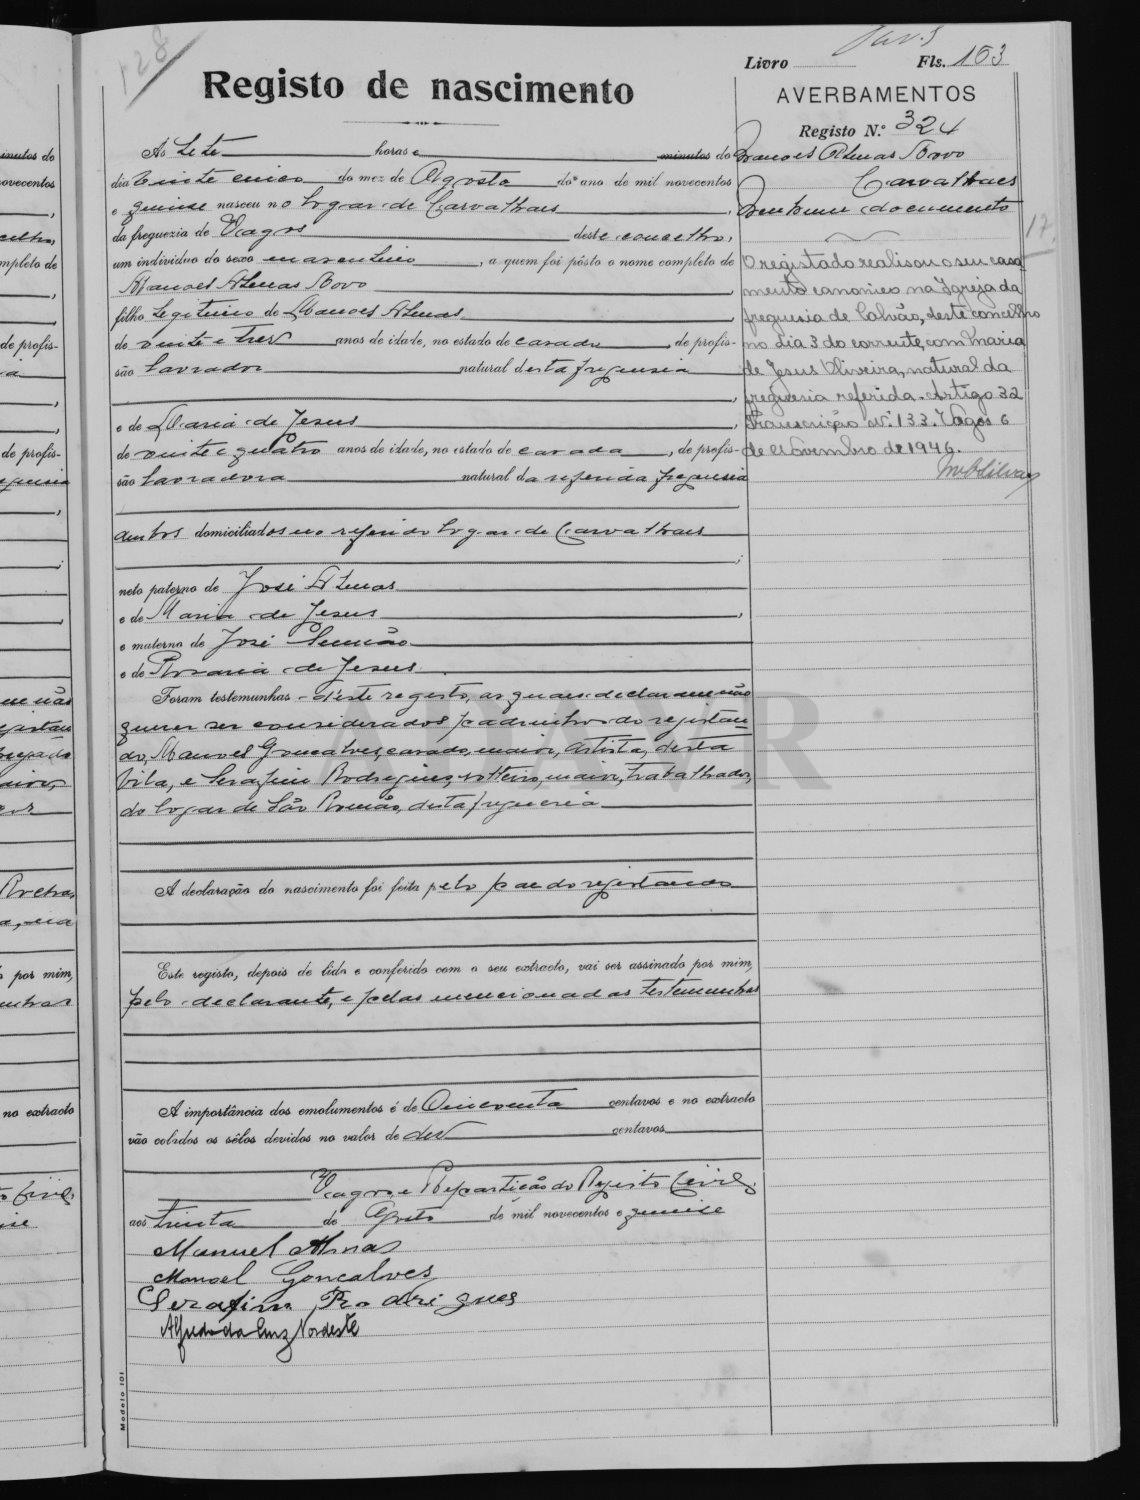 128
Registo de nascimento
Livro
Fls. 163
AVERBAMENTOS
Registo N.º 324
Às sete horas e minutos do
dia vinte cinco do mez de Agosto do ano de mil novecentos
e quinse nasceu no logar de Carvalhaes,
da freguezia de Vagos deste concelho,
um individuo do sexo masculino, a quem foi pôsto o nome completo de
Manoel Novo,
filho legitimo de Manoel
de vinte e tres anos de idade, no estado de casado, de profis-
são lavrador natural desta freguesia
,
e de Maria de Jesus,
de vinte e quatro anos de idade, no estado de casada, de profis-
são lavradora natural da referida freguesia
ambos domiciliados no referido logar de Carvalhaes
;
neto paterno de José
e de Maria de Jesus,
e materno de José Simão
e de Rosaria de Jesus.
Foram testemunhas deste registo, as quaes declararam não
querer ser considerados padrinhos do registan-
do, Manoel Goncalves, casado, maior, artista, desta
vila, e Serafim Rodrigues, solteiro, maior, trabalhador,
do logar de São Romão, desta freguesia
A declaração do nascimento foi feita pelo pae do registando
Este registo, depois de lido e conferido com o seu extracto, vai ser assinado por mim,
pelo declarante, e pelas mencionadas testemunhas
A importância dos emolumentos é de Cincoenta centavos e no extracto
vão colados os sêlos devidos no valor de dez centavos
Vagos, e Repartição do Registo Civil,
aos trinta de Agosto de mil novecentos e quinse
Manuel
Manoel Goncalves
Serafim Rodrigues
Alfredo da Cruz Nordeste
Modelo 101
Manoel Novo
Carvalhaes
documento
17
O registado realisou o seu casa-
mento canonico na Igreja da
freguesia de Calvão, deste concelho
no dia 3 do corrente, com Maria
de Jesus Oliveira, natural da
freguesia referida. Artigo 32
Transcrição n.º 133. Vagos 6
de Novembro de 1946.
ADAVR